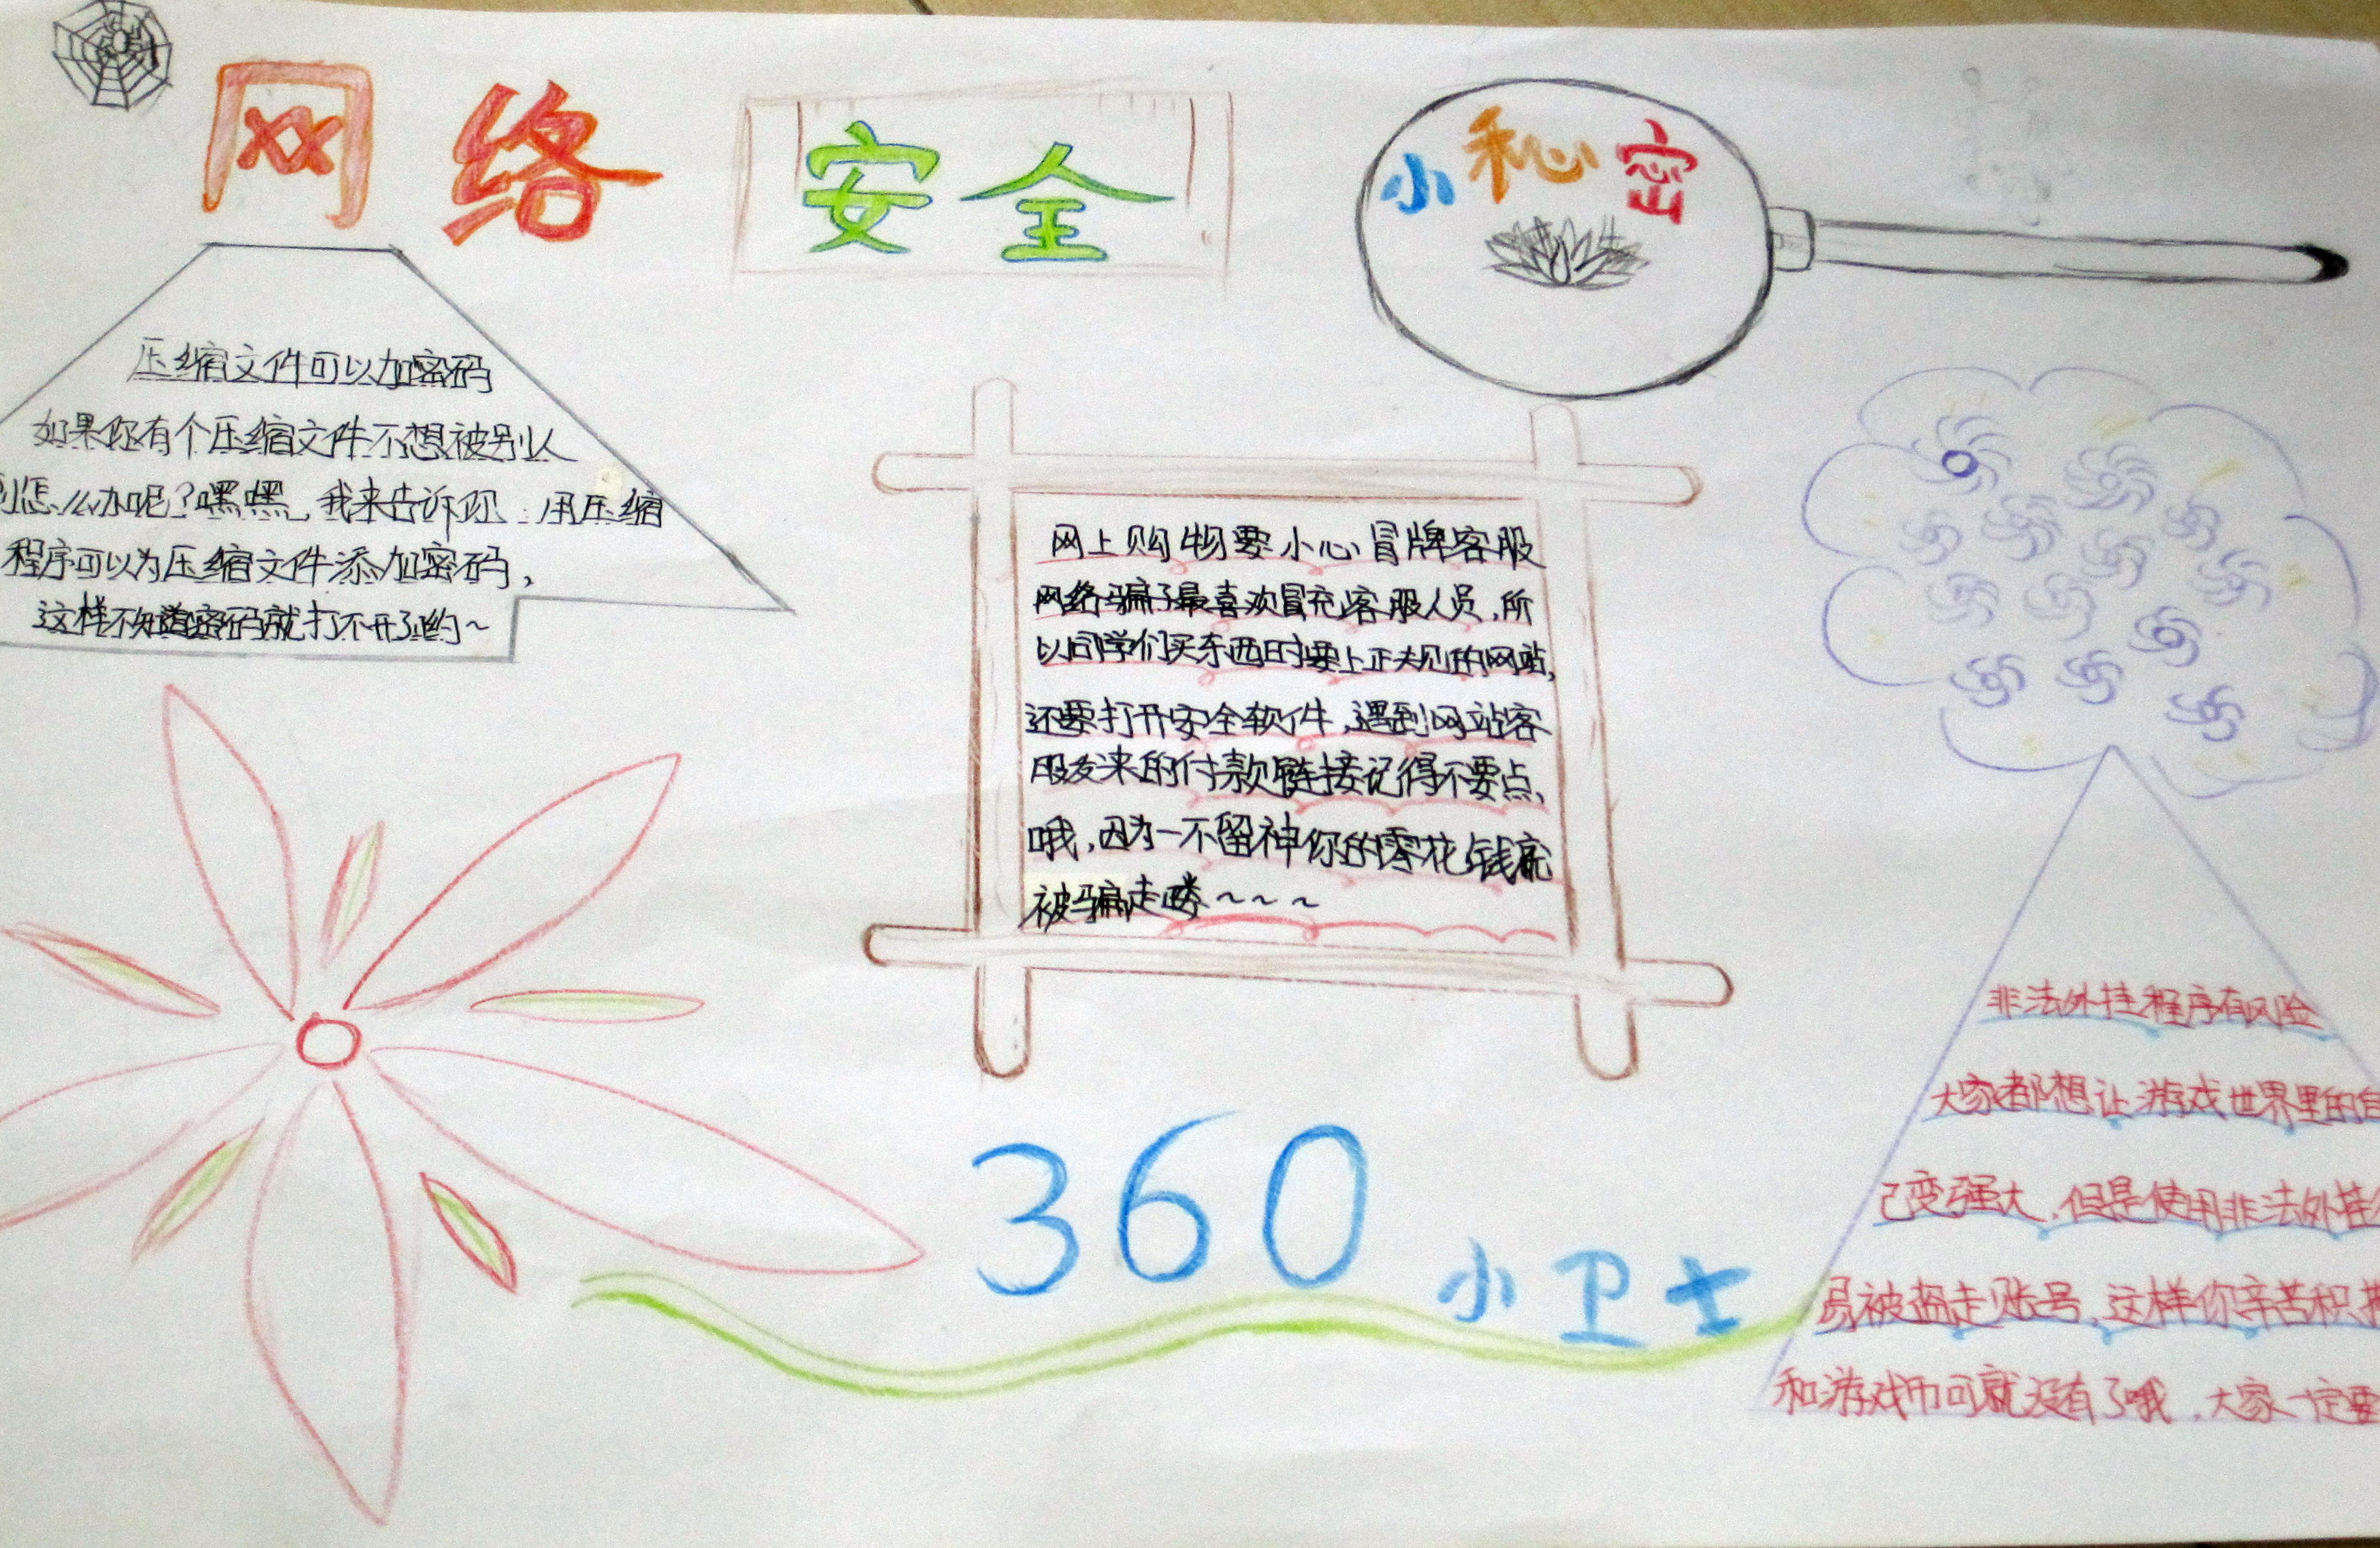 网络 安全 小秘密
压缩文件可以加密码
如果你有个压缩文件不想被别人
到怎么办呢?嘿嘿,我来告诉你:用压缩
程序可以为压缩文件添加密码,
这样不知道密码就打不开了哟~
网上购物要小心冒牌客服
网络骗子最喜欢冒充客服人员,所
以同学们买东西时要上正规的网站,
还要打开安全软件,遇到网站客
服发来的付款链接记得不要点,
哦,因为一不留神你的零花钱就
被骗走喽~~~
360 小卫士
非法外挂程序有风险
大家都想让游戏世界里的自
己变强大,但是使用非法外挂
易被盗走账号,这样你辛苦积
和游戏币可就没有了哦,大家一定要